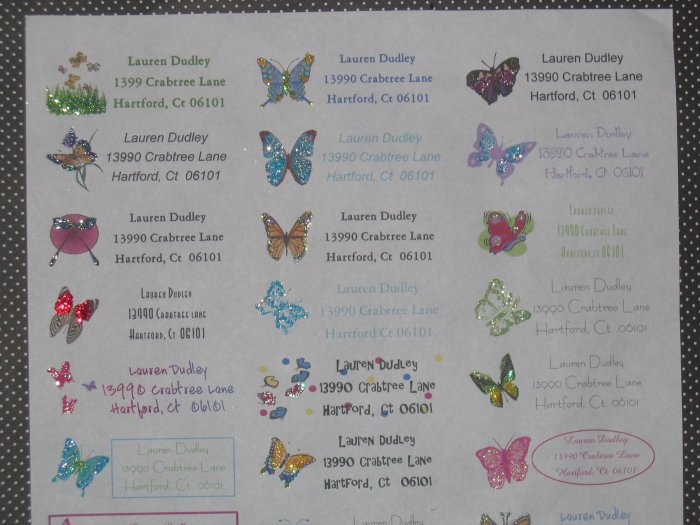 Lauren Dudley
1399 Crabtree Lane
Hartford, Ct 06101
Lauren Dudley
13990 Crabtree Lane
Hartford, Ct 06101
Lauren Dudley
13990 Crabtree Lane
Hartford, Ct 06101
Lauren Dudley
13990 Crabtree Lane
Hartford, Ct 06101
Lauren Dudley
13990 Crabtree Lane
Hartford, Ct 06101
Lauren Dudley
13990 Crabtree Lane
Hartford, Ct 06101
Lauren Dudley
13990 Crabtree Lane
Hartford, Ct 06101
Lauren Dudley
13990 Crabtree Lane
Hartford, Ct 06101
Lauren Dudley
13990 Crabtree Lane
Hartford, Ct 06101
Lauren Dudley
13990 Crabtree Lane
Hartford, Ct 06101
Lauren Dudley
13990 Crabtree Lane
Hartford Ct 06101
Lauren Dudley
13990 Crabtree Lane
Hartford, Ct 06101
Lauren Dudley
13990 Crabtree Lane
Hartford, Ct 06101
Lauren Dudley
13990 Crabtree Lane
Hartford, Ct 06101
Lauren Dudley
13990 Crabtree Lane
Hartford, Ct 06101
Lauren Dudley
13990 Crabtree Lane
Hartford, Ct 06101
Lauren Dudley
13990 Crabtree Lane
Hartford, Ct 06101
Lauren Dudley
13990 Crabtree Lane
Hartford, Ct 06101
Lauren Dudley
Lauren Dudley